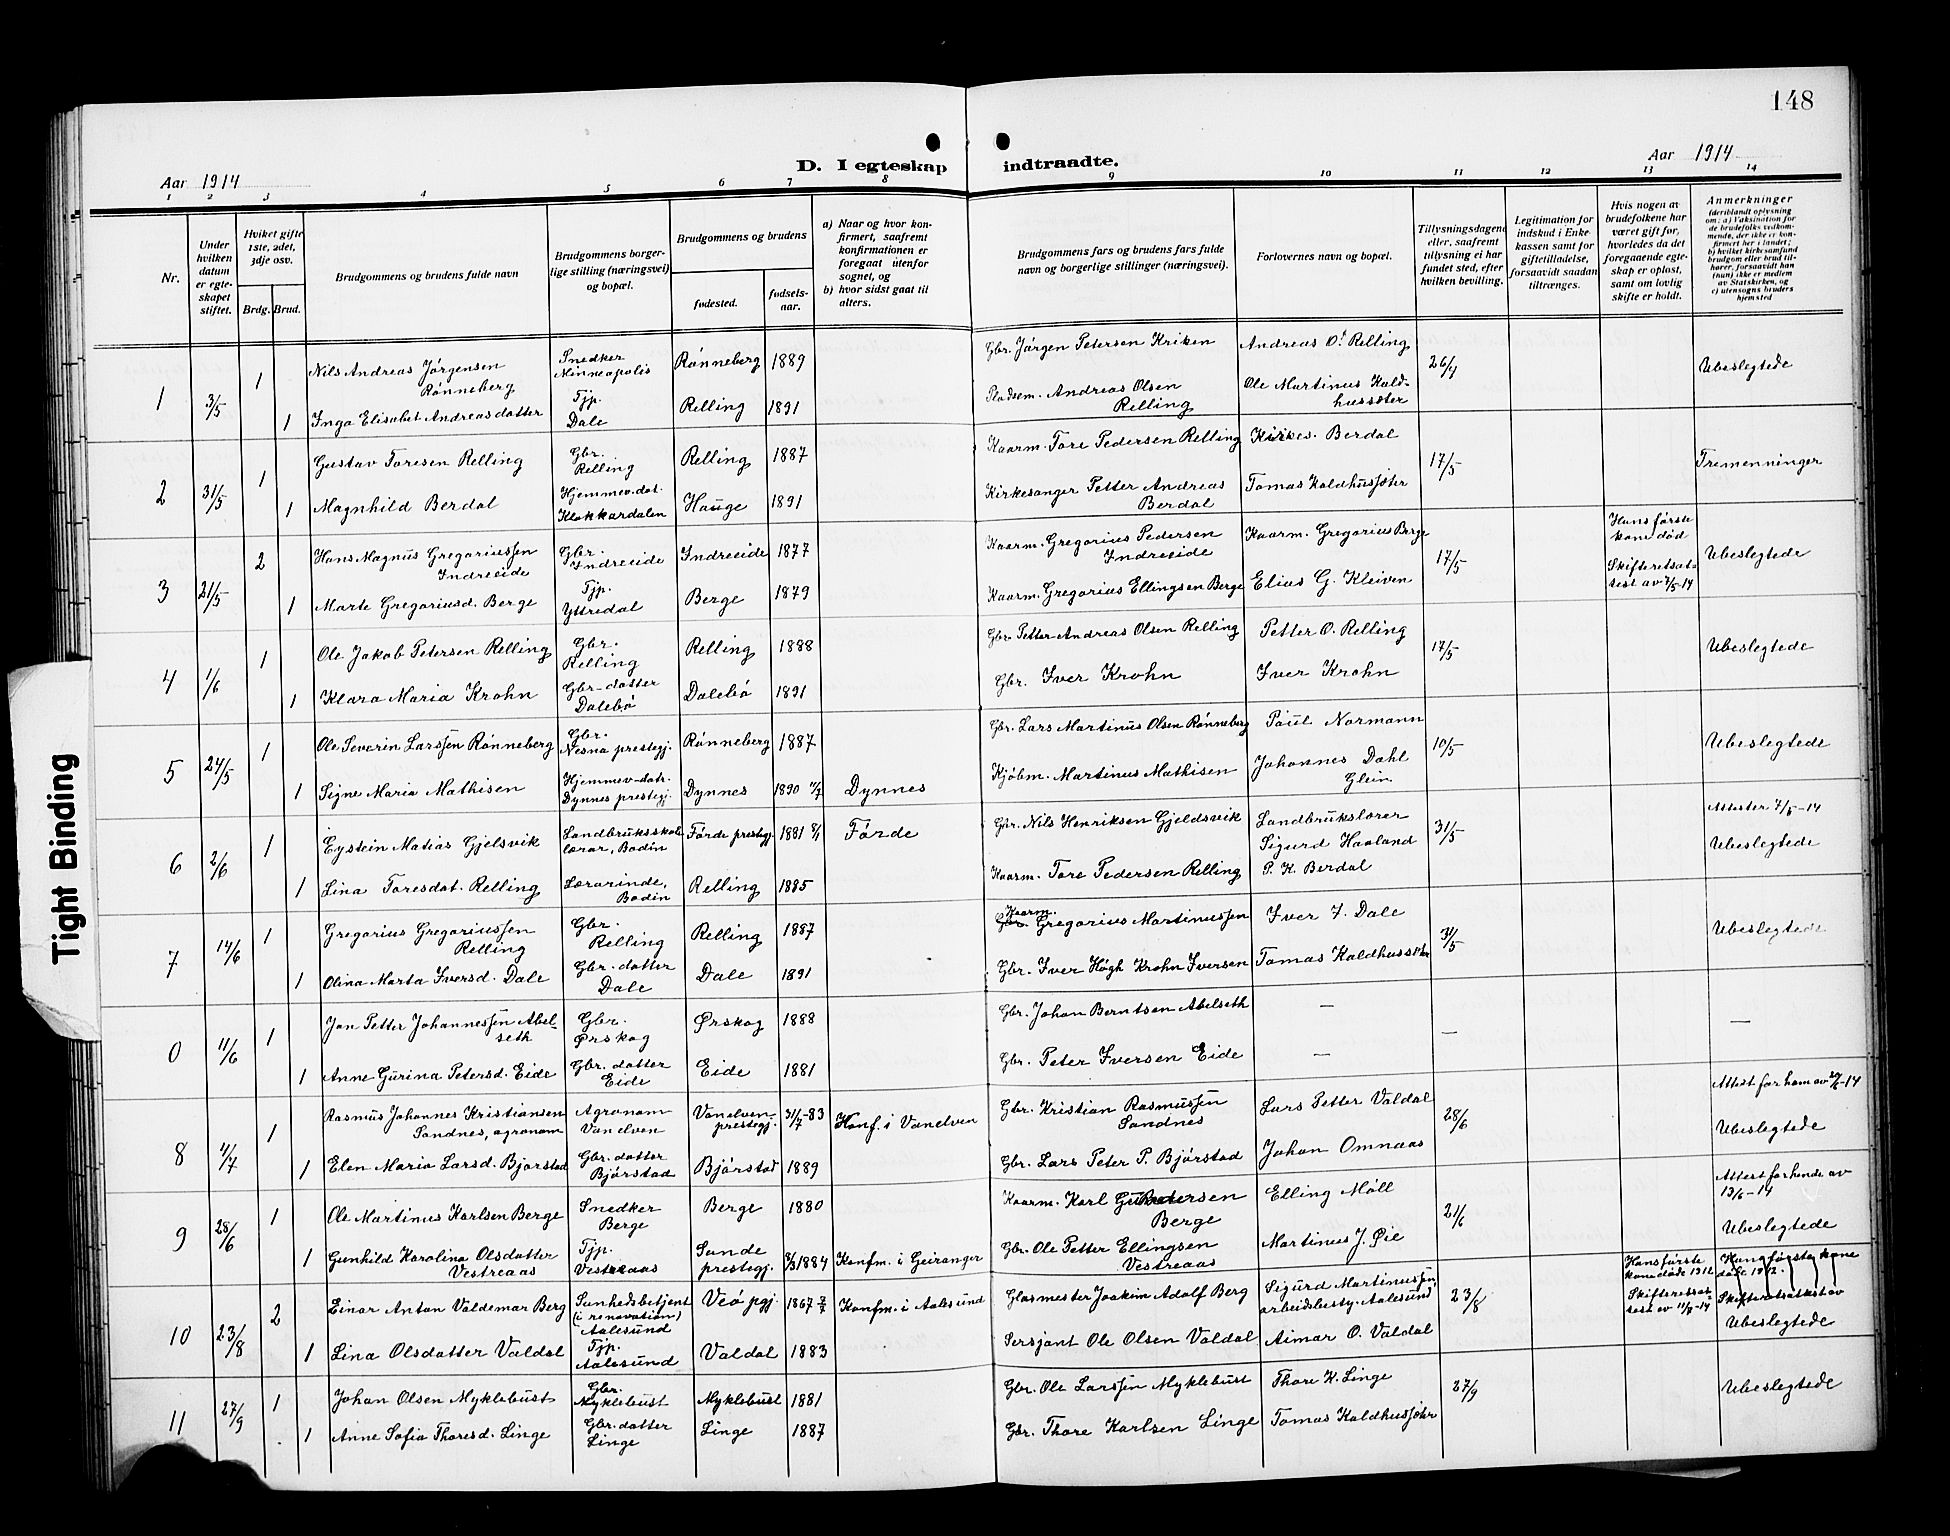 148
Aar 1914
D. I egteskap indtraadte.
Aar 1914
1 2 3 4 5 6 7 8 9 10 11 12 13 14
Nr.
Under hvilken datum er egteskapet stiftet.
Hviket gifte 1ste, 2det, 3dje osv.
Brdg. Brud.
Brudgommens og brudens fulde navn
Brudgommens borgerlige stilling (næringsvei) og bopæl.
Brudgommens og brudens
fødested.
fødselsaar.
a) Naar og hvor konfirmert, saafremt konfirmationen er foregaat utenfor sognet, og
b) hvor sidst gaat til alters.
Brudgommens fars og brudens fars fulde navn og borgerlige stillinger (næringsvei).
Forlovernes navn og bopæl.
Tillysningsdagene eller, saafremt tillysning ei har fundet sted, efter hvilken bevilling.
Legitimation for indskud i Enkekassen samt for giftetilladelse, forsaavidt saadan tiltrænges.
Hvis nogen av brudefolkene har været gift før, hvorledes da det foregaaende egteskap er opløst, samt om lovlig skifte er holdt.
Anmerkninger
(deriblandt oplysning om: a) Vaksination for de brudefolks vedkommende, der ikke er konfirmert her i landet; b) hvilket kirkesamfund brudgom eller brud tilhører, forsaavidt han (hun) ikke er medlem av Statskirken, og c) utensogns bruders hjemsted
1 3/5 1 Nils Andreas Jørgensen Rønneberg Snedker Minneapolis Rønneberg 1889 Gbr. Jørgen Petersen Kriken Andreas O. Relling 26/4 Ubeslegtede
1 Inga Elisabet Andreasdatter Tjp. Dale Relling 1891 Pladsem. Andreas Olsen Relling Ole Martinus Kaldhussæter
2 31/5 1 Gustav Toresen Relling Gbr. Relling Relling 1887 Kaarm. Tore Pedersen Relling Kirkes. Berdal 17/5 Tremenninger
1 Magnhild Berdal Hjemmev. dat. Klokkardalen Hauge 1891 Kirkesanger Petter Andreas Berdal Tomas Kaldhussæter
3 21/5 2 Hans Magnus Gregoriussen Indreeide Gbr. Indreeide Indreeide 1877 Kaarm. Gregorius Pedersen Indreeide Kaarm. Gregorius Berge 17/5 Hans første kone død Skifteretsattest av 7/5-14 Ubeslegtede
1 Marte Gregoriusd. Berge Tjp. Yttredal Berge 1879 Kaarm. Gregorius Ellingsen Berge Elias G. Kleiven
4 1/6 1 Ole Jakob Petersen Relling Gbr. Relling Relling 1888 Gbr. Petter Andreas Olsen Relling Petter O. Relling 17/5 Ubeslegtede
1 Klara Maria Krohn Gbr-datter Dalebø Dalebø 1891 Gbr. Iver Krohn Iver Krohn
5 24/5 1 Ole Severin Larssen Rønneberg Gbr. Nesna prestegj. Rønneberg 1887 Gbr. Lars Martinus Olsen Rønneberg Paul Normann 10/5 Ubeslegtede
1 Signe Maria Mathisen Hjemmev-datr. Dynnes prestegj. Dynnes 1890 Dynnes Kjøbm. Martinus Mathisen Johannes Dahl Glein
6 2/6 1 Eystein Matias Gjelsvik Landbruksskolelærar, Bodin Førde prestegj. 1881 Førde Gbr. Nils Henriksen Gjeldsvik Landbrukslærer Sigurd Haaland 31/5 Attester 7/5-14 Ubeslegtede
1 Lina Toresdat. Relling Lærarinde, Bodin Relling 1885 Kaarm. Tore Pedersen Relling P. K. Berdal
7 14/6 1 Gregorius Gregoriussen Relling Gbr. Relling Relling 1887 Kaarm. Gbr. Gregorius Martinussen Iver I. Dale 31/5 Ubeslegtede
1 Olina Marta Iversd. Dale Gbr. datter Dale Dale 1891 Gbr. Iver Høgh Krohn Iversen Tomas Kaldhussæter
0 11/6 1 Jon Petter Johannessen Abelseth Gbr. Ørskog Ørskog 1888 Gbr. Johan Berntsen Abelseth — — —
1 Anne Gurina Petersd. Eide Gbr. datter Eide Eide 1881 Gbr. Peter Iversen Eide —
8 4/7 1 Rasmus Johannes Kristiansen Sandnes, agronom Agronom Vanelven Vanelven prestegj. 31/7-83 Konf. i Vanelven Gbr. Kristian Rasmussen Sandnes Lars Petter Valdal 28/6 Attest for ham av Ubeslegtede
1 Elen Maria Larsd. Bjørstad Gbr. datter Bjørstad Bjørstad 1889 Gbr. Lars Peter P. Bjørstad Johan Omnaas
9 28/6 1 Ole Martinus Karlsen Berge Snedker Berge Berge 1880 Kaarm. Karl Berge Elling Møll 21/6 Attest for hende av 13/6-14 Ubeslegtede
1 Gunhild Karolina Olsdatter Vestreaas Tjp. Vestreaas Sande prestegj. 1884 Konfm. i Geiranger Gbr. Ole Petter Ellingsen Vestreaas Martinus J. Øie
10 23/8 2 Einar Anton Valdemar Berg Sunhedsbetjent (i renovation) Aalesund Veø pgj. 1867 Konfm. i Aalesund Glasmester Joakim Adolf Berg Sigurd Martinussen, arbeidsbesty. Aalesund 23/8 Hans første kone døde 1912 Skifteretsattest av 11/8-14 Hans første kone døde 1912. Skifteretsattest av Ubeslegtede
1 Lina Olsdatter Valdal Tjp. Aalesund Valdal 1883 Sersjant Ole Olsen Valdal Aimar O. Valdal
11 27/9 1 Johan Olsen Myklebust Gbr. Myklebust Myklebust 1881 Gbr. Ole Larssen Myklebust Thore K. Linge 27/9 Ubeslegtede
1 Anne Sofia Thoresd. Linge Gbr. datter Linge Linge 1887 Gbr. Thore Karlsen Linge Tomas Kaldhussæter
Tight Binding